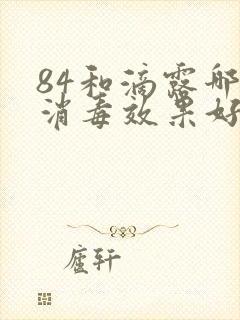 84和滴露哪
消毒效果好
廬轩